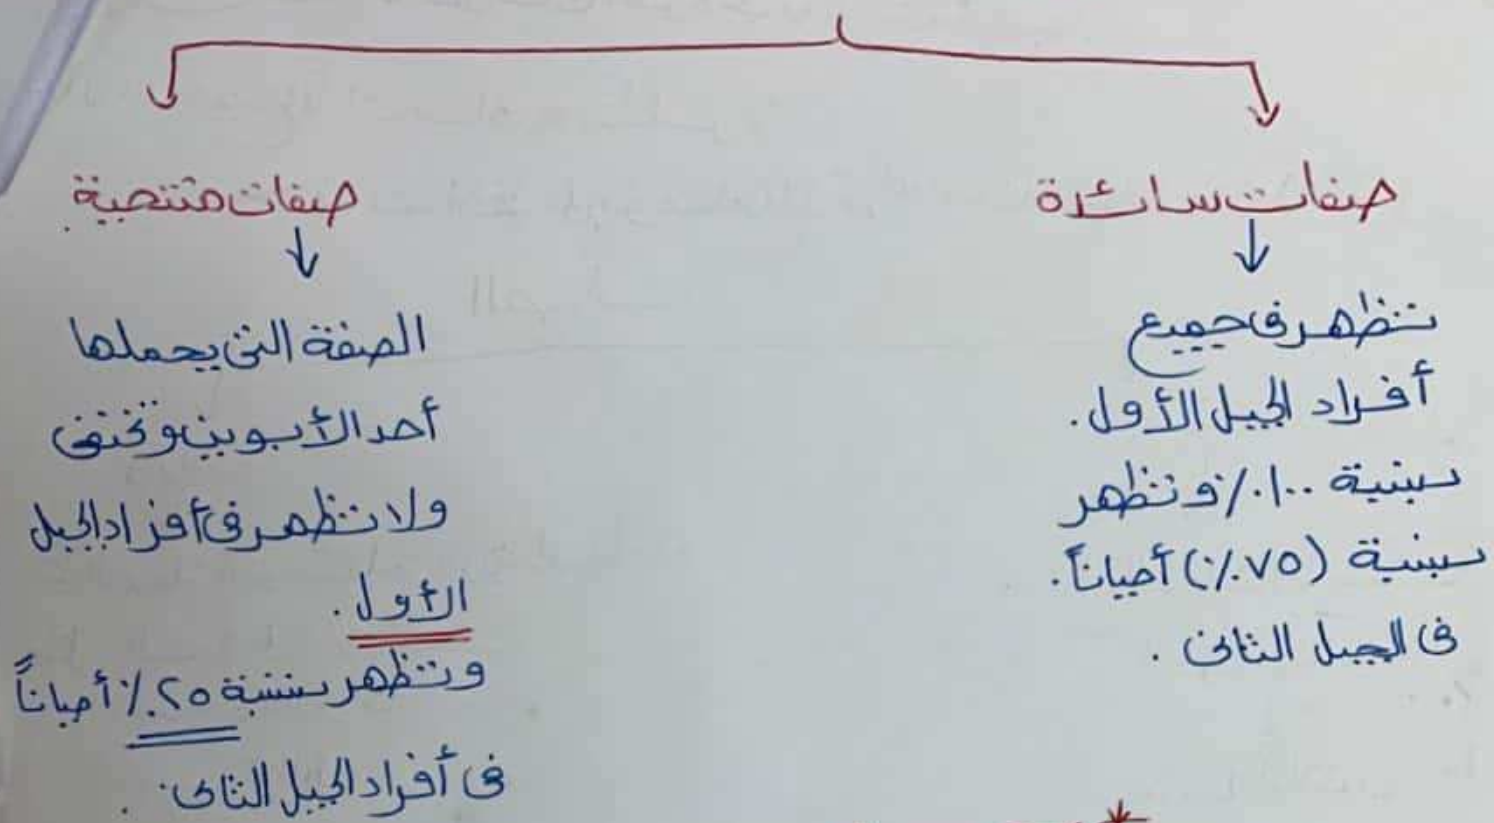 صفات سائدة
تظهر فى جميع
أفراد الجيل الأول.
بنسبة ١٠٠٪ وتظهر
بنسبة (٧٥٪) أحياناً.
فى الجيل الثانى .
صفات متنحية
الصفة التى يحملها
أحد الأبوين وتختفى
ولا تظهر فى أفراد الجيل
الأول .
وتظهر بنسبة ٢٥٪ أحياناً
فى أفراد الجيل الثانى .